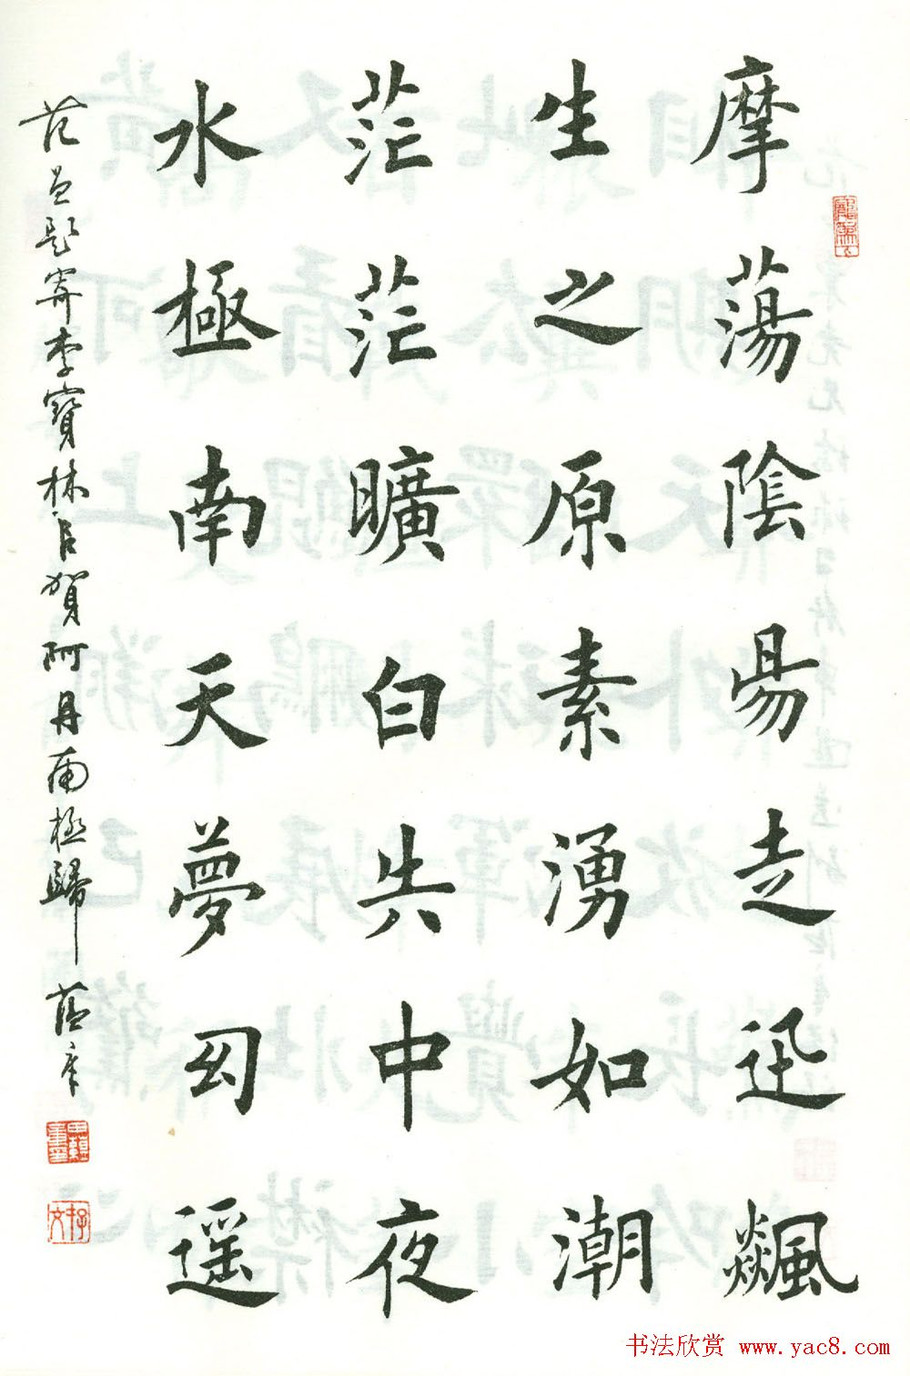 摩蕩陰昜走迅飈
生之原素湧如潮
茫茫曠白共中夜
水極南天夢幻遥
題寄李寶林 賀阿丹南極歸
书法欣赏 www.yac8.com